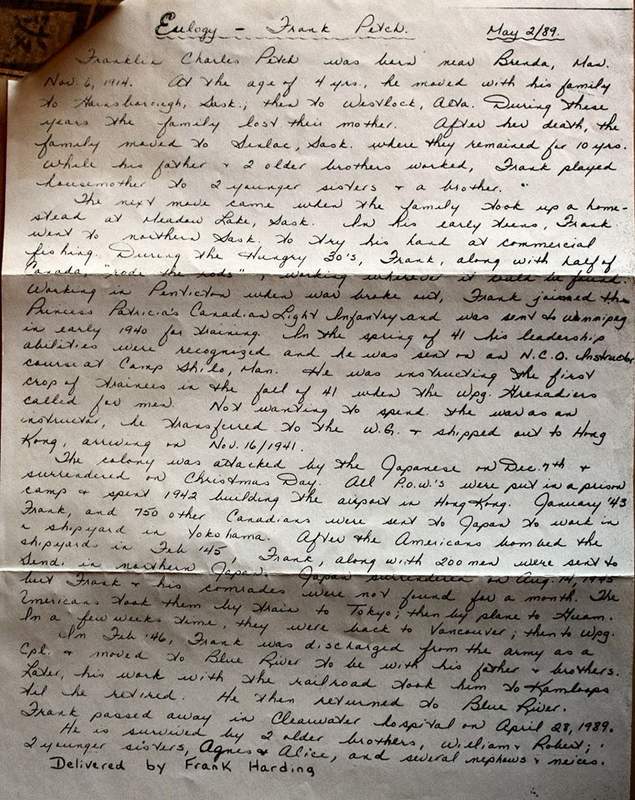 Eulogy - Frank Petch. May 2/89.
Franklin Charles Petch was born near Brenda, Man.
Nov. 6, 1914. At the age of 4 yrs., he moved with his family
to Hainsborough, Sask.; then to Westlock, Alta. During these
years the family lost their mother. After her death, the
family moved to Senlac, Sask. where they remained for 10 yrs.
While his father & 2 older brothers worked, Frank played
housemother to 2 younger sisters & a brother."
The next move came when the family took up a home-
stead at Meadow Lake, Sask. In his early teens, Frank
went to northern Sask. to try his hand at commercial
fishing. During the Hungry 30's, Frank, along with half of
Canada, "rode the rods", working wherever it could be found.
Working in Penticton when war broke out, Frank joined the
Princess Patricia's Canadian Light Infantry and was sent to Winnipeg
in early 1940 for training. In the spring of 41 his leadership
abilities were recognized and he was sent on an N.C.O. Instructor
course at Camp Shilo, Man. He was instructing the first
crop of trainees in the fall of 41 when the Wpg. Grenadiers
called for men. Not wanting to spend the war as an
instructor, he transferred to the W.G. & shipped out to Hong
Kong, arriving on Nov. 16/1941.
The colony was attacked by the Japanese on Dec. 7th &
surrendered on Christmas Day. All P.O.W.'s were put in a prison
camp & spent 1942 building the airport in Hong Kong. January '43
Frank, and 750 other Canadians were sent to Japan to work in
a shipyard in Yokohama. After the Americans bombed the
shipyards in Feb '45, Frank, along with 200 men were sent to
Sendi in northern Japan. Japan surrendered on Aug. 14, 1945
but Frank & his comrades were not found for a month. The
Americans took them by train to Tokyo; then by plane to Guam.
In a few weeks time, they were back to Vancouver; then to Wpg.
In Feb '46, Frank was discharged from the army as a
Cpl. & moved to Blue River to be with his father & brothers.
Later, his work with the railroad took him to Kamloops
til he retired. He then returned to Blue River.
Frank passed away in Clearwater hospital on April 28, 1989.
He is survived by 2 older brothers, William & Robert;
2 younger sisters, Agnes & Alice, and several nephews & neices.
Delivered by Frank Harding